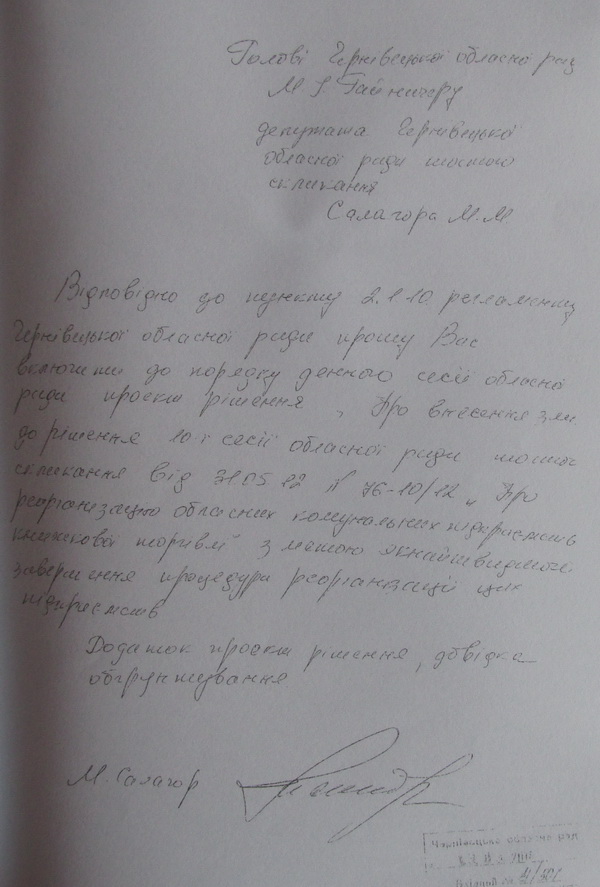 Голові Чернівецької обласної рад
М. І. Гайничеру
депутата Чернівецької
обласної ради шостого
скликання
Салагора М.М
Відповідно до пункту 2.1.10. регламенту
Чернівецької обласної ради прошу Вас
включити до порядку денного сесії обласної
ради проект рішення „Про внесення змі
до рішення 10ї сесії обласної ради шостог
скликання від 31.05.12 № 76-10/12 „Про
реорганізацію обласних комунальних підприємств
книжкової торгівлі" з метою якнайшвидшого
завершення процедури реорганізації цих
підприємств
Додаток проект рішення, довідка
обґрунтування
М. Салагор
Чернівецька обласна рад